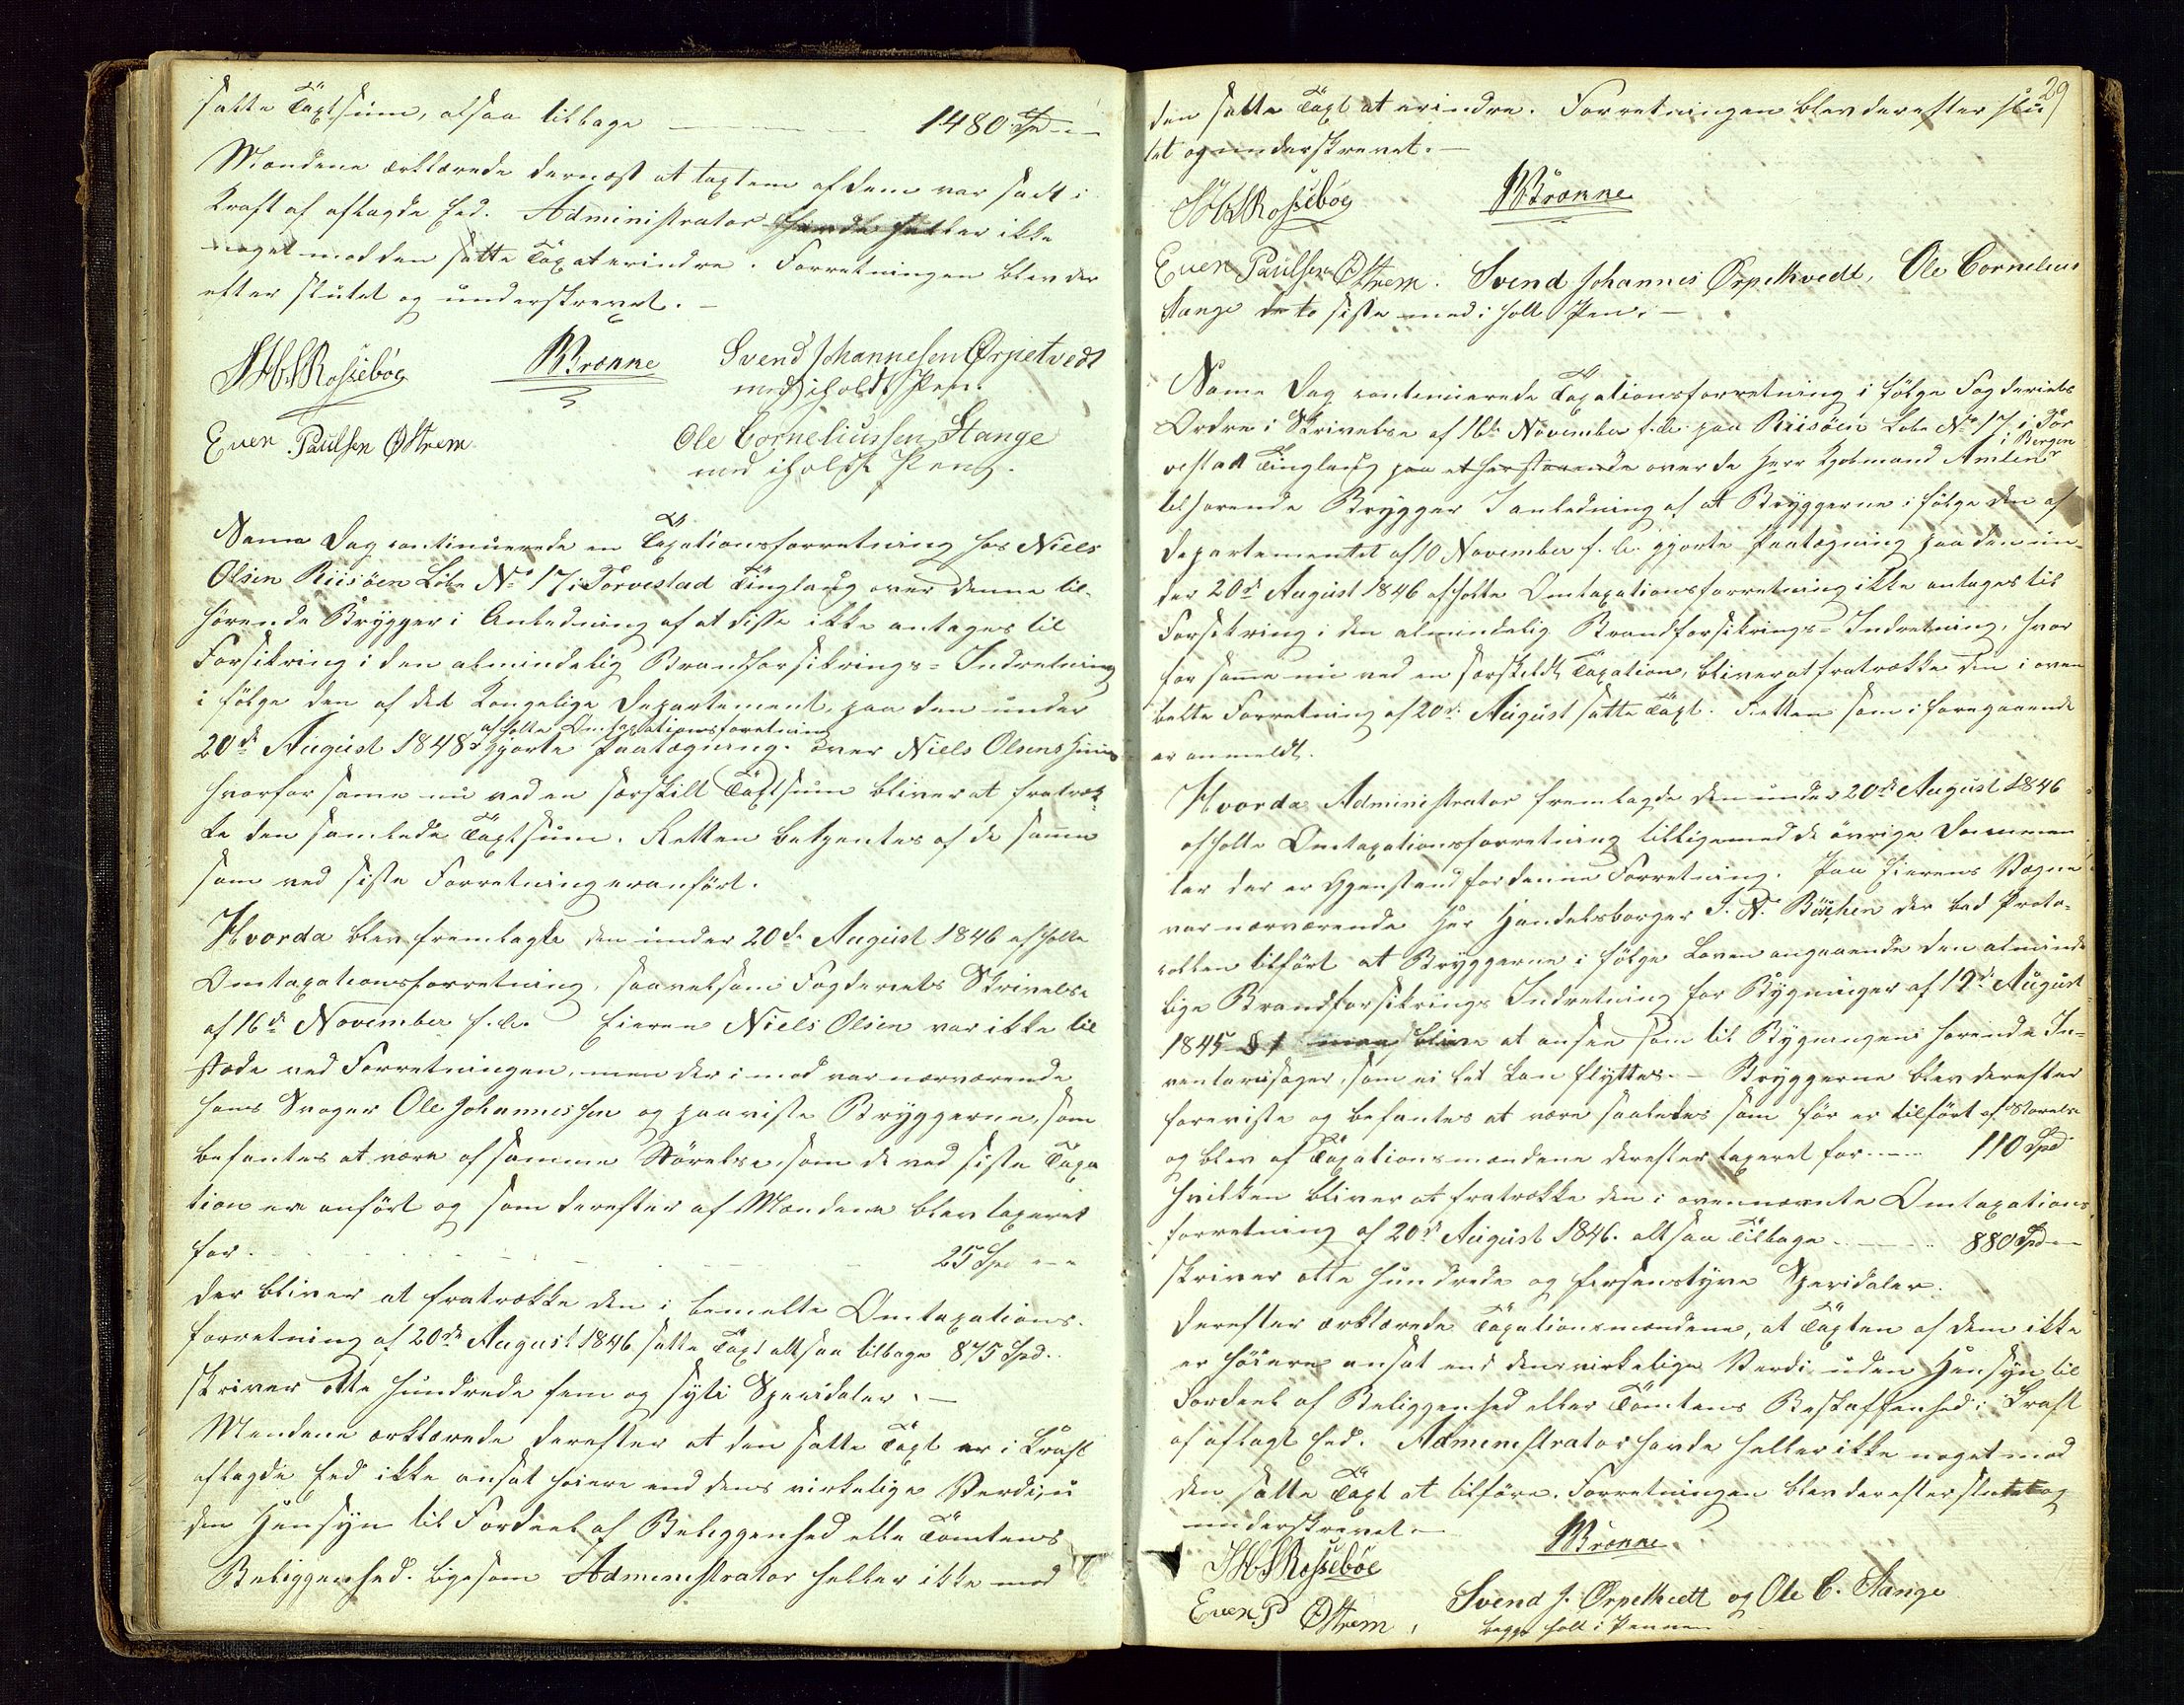 satte Taxtsum, altsaa tilbage — — — 1480 Spd - -
Mændene erklærede dernæst at taxten af dem var sadt i
Kraft af aflagde Eed. Administrator havde heller ikke
noget mod den satte Taxt at erindre. Forretningen blev der
efter sluttet og underskrevet. —
JHSRossebøe WBrønne Svend Johannesen Ørpetvedt
med iholdt Pen.
Even Paulsen Østrem Ole Corneliussen Stange
med iholdt Pen.
Same Dag continuerede en Taxationsforretning hos Niels
Olsen Riisøen Løbe No 17 i Torvestad Tinglaug over denne til-
hørende Brygger i Anledning af at disse ikke antages til
Forsikring i den almindelig Brandforsikrings-Indretning
i følge den af det Kongelige Departement, paa den under
afholte Omtaxationsforetning
20de August 1848 gjorte Paategning. over Niels Olsens Huus
hvorfor same nu ved en særskilt Taxtsum bliver at fratræk-
ke den samlede Taxtsum. Retten betjentes af de samme
som ved siste Forretning er anført.
Hvorda blev fremlagte den under 20de August 1846 afholte
Omtaxationsforretning, saavelsom Fogderiets Skrivelse
af 16de November f. A. Eieren Niels Olsen var ikke til
stæde ved Forretningen, men der i mod var nærværende
hans Svoger Ole Johannessen og paaviste Bryggerne, som
befantes at være af samme Størrelse, som de ved siste Taxa
tion er anført og som derefter af Mændene blev taxeret
for - - - - - 25 Spd - -
der bliver at fratrække den i bemelte Omtaxations-
forretning af 20de August 1846 satte Taxt altsaa tilbage 875 Spd.
skriver otte hundrede fem og sytti Speesidaler. —
Mendene erklærede derefter at den satte Taxt er i Kraft
aflagde Eed ikke ansat høiere end dens virkelige Verdi, u
den Hensyn til Fordeel af Beliggenhed elle Tomtens
Beliggenhed. ligesom Administrator heller ikke mod
29
den satte Taxt at erindre. Forretningen blev derefter slu
tet og underskrevet. —
JHSRossebøe WBrønne
Even Paulsen Østrem. Svend Johannes Ørpethvedt, Ole Cornelius
Stange de to siste med i holt Pen. —
Same Dag continuerede Taxationsforretning i følge Fogderiets
Ordre i Skrivelse af 16de November f. A. paa Riisøen Løbe No 17 i Tor
i Bergen
vestad Tinglaug paa et herstaaende over de Herr Kjøbmand Amlen
tilhørende Brygger I anledning af at Bryggerne i følge den af
Departementet af 10 November f. A. gjorte Paategning paa den un-
der 20de August 1846 afholte Omtaxationsforretning ikke antages til
Forsikring i den almindelig Brandforsikrings-Indretning, hvor
for same nu ved en særskildt Taxation, bliver at fratrække den i oven
belte Forretning af 20de August satte Taxt. Retten som i foregaaende
er anmeldt.
Hvorda Administrator fremlagde den under 20de August 1846
afholte Omtaxationsforretning tilligemed de øvrige Documen
ter der er Gjenstand for denne Forretning. Paa Eierens Vægne
var nærværende Hr Handelsborger J. N. Büchen der bad Proto-
collen tilført at Bryggerne i følge Loven angaaende den alminde
lige Brandforsikrings Indretning for Bygninger af 19de August
1845 § 1 maa blive at ansee som til Bygningen hørende In-
ventariisager, som ei let kan flyttes. — Bryggerne blev derefter
foreviste og befantes at være saaledes som før er tilført af Størrelse
og blev af Taxationsmændene derefter taxeret for — 110 Spd
hvilken bliver at fratrække den i ovennævnte Omtaxations
forretning af 20de August 1846. altsaa Tilbage — 880 Spd —
skriver otte hundrede og firsenstyve Speesidaler.
Derefter erklærede Taxationsmændene, at Taxten af dem ikke
er høiere ansat end dens virkelige Verdi uden Hensyn til
Fordeel af Beliggenhed eller Tomtens Beskaffenhed i Kraft
af aflagt Eed. Administrator havde heller ikke noget mod
den satte Taxt at tilføre. Forretningen blev derefter sluttet og
underskrevet. —
JHSRossebøe WBrønne
Even P Østrem, Svend J. Ørpethvedt og Ole C. Stange
begge holt i Pennen